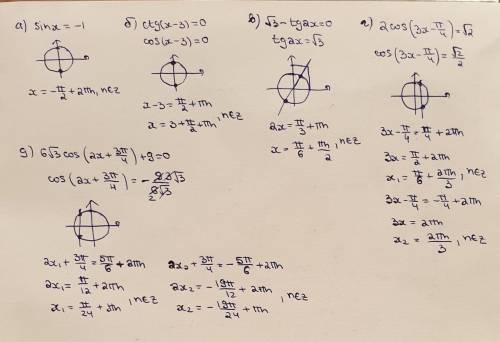 а) sinx = -1
x = -π/2 + 2πn, n∈Z
б) ctg(x-3)=0
cos(x-3)=0
x-3 = π/2 + πn
x = 3 + π/2 + πn, n∈Z
в) √3 - tg2x=0
tg2x=√3
2x = π/3 + πn
x = π/6 + πn/2, n∈Z
г) 2cos(3x-π/4)=√2
cos(3x-π/4)=√2/2
3x-π/4 = π/4 + 2πn
3x = π/2 + 2πn
x₁ = π/6 + 2πn/3, n∈Z
3x-π/4 = -π/4 + 2πn
3x = 2πn
x₂ = 2πn/3, n∈Z
g) 6√3 cos(2x + 3π/4)+9=0
2x₁ + 3π/4 = 5π/6 + 2πn
2x₁ = π/12 + 2πn
x₁ = π/24 + πn, n∈Z
2x₂ + 3π/4 = -5π/6 + 2πn
2x₂ = -19π/12 + 2πn
x₂ = -19π/24 + πn, n∈Z